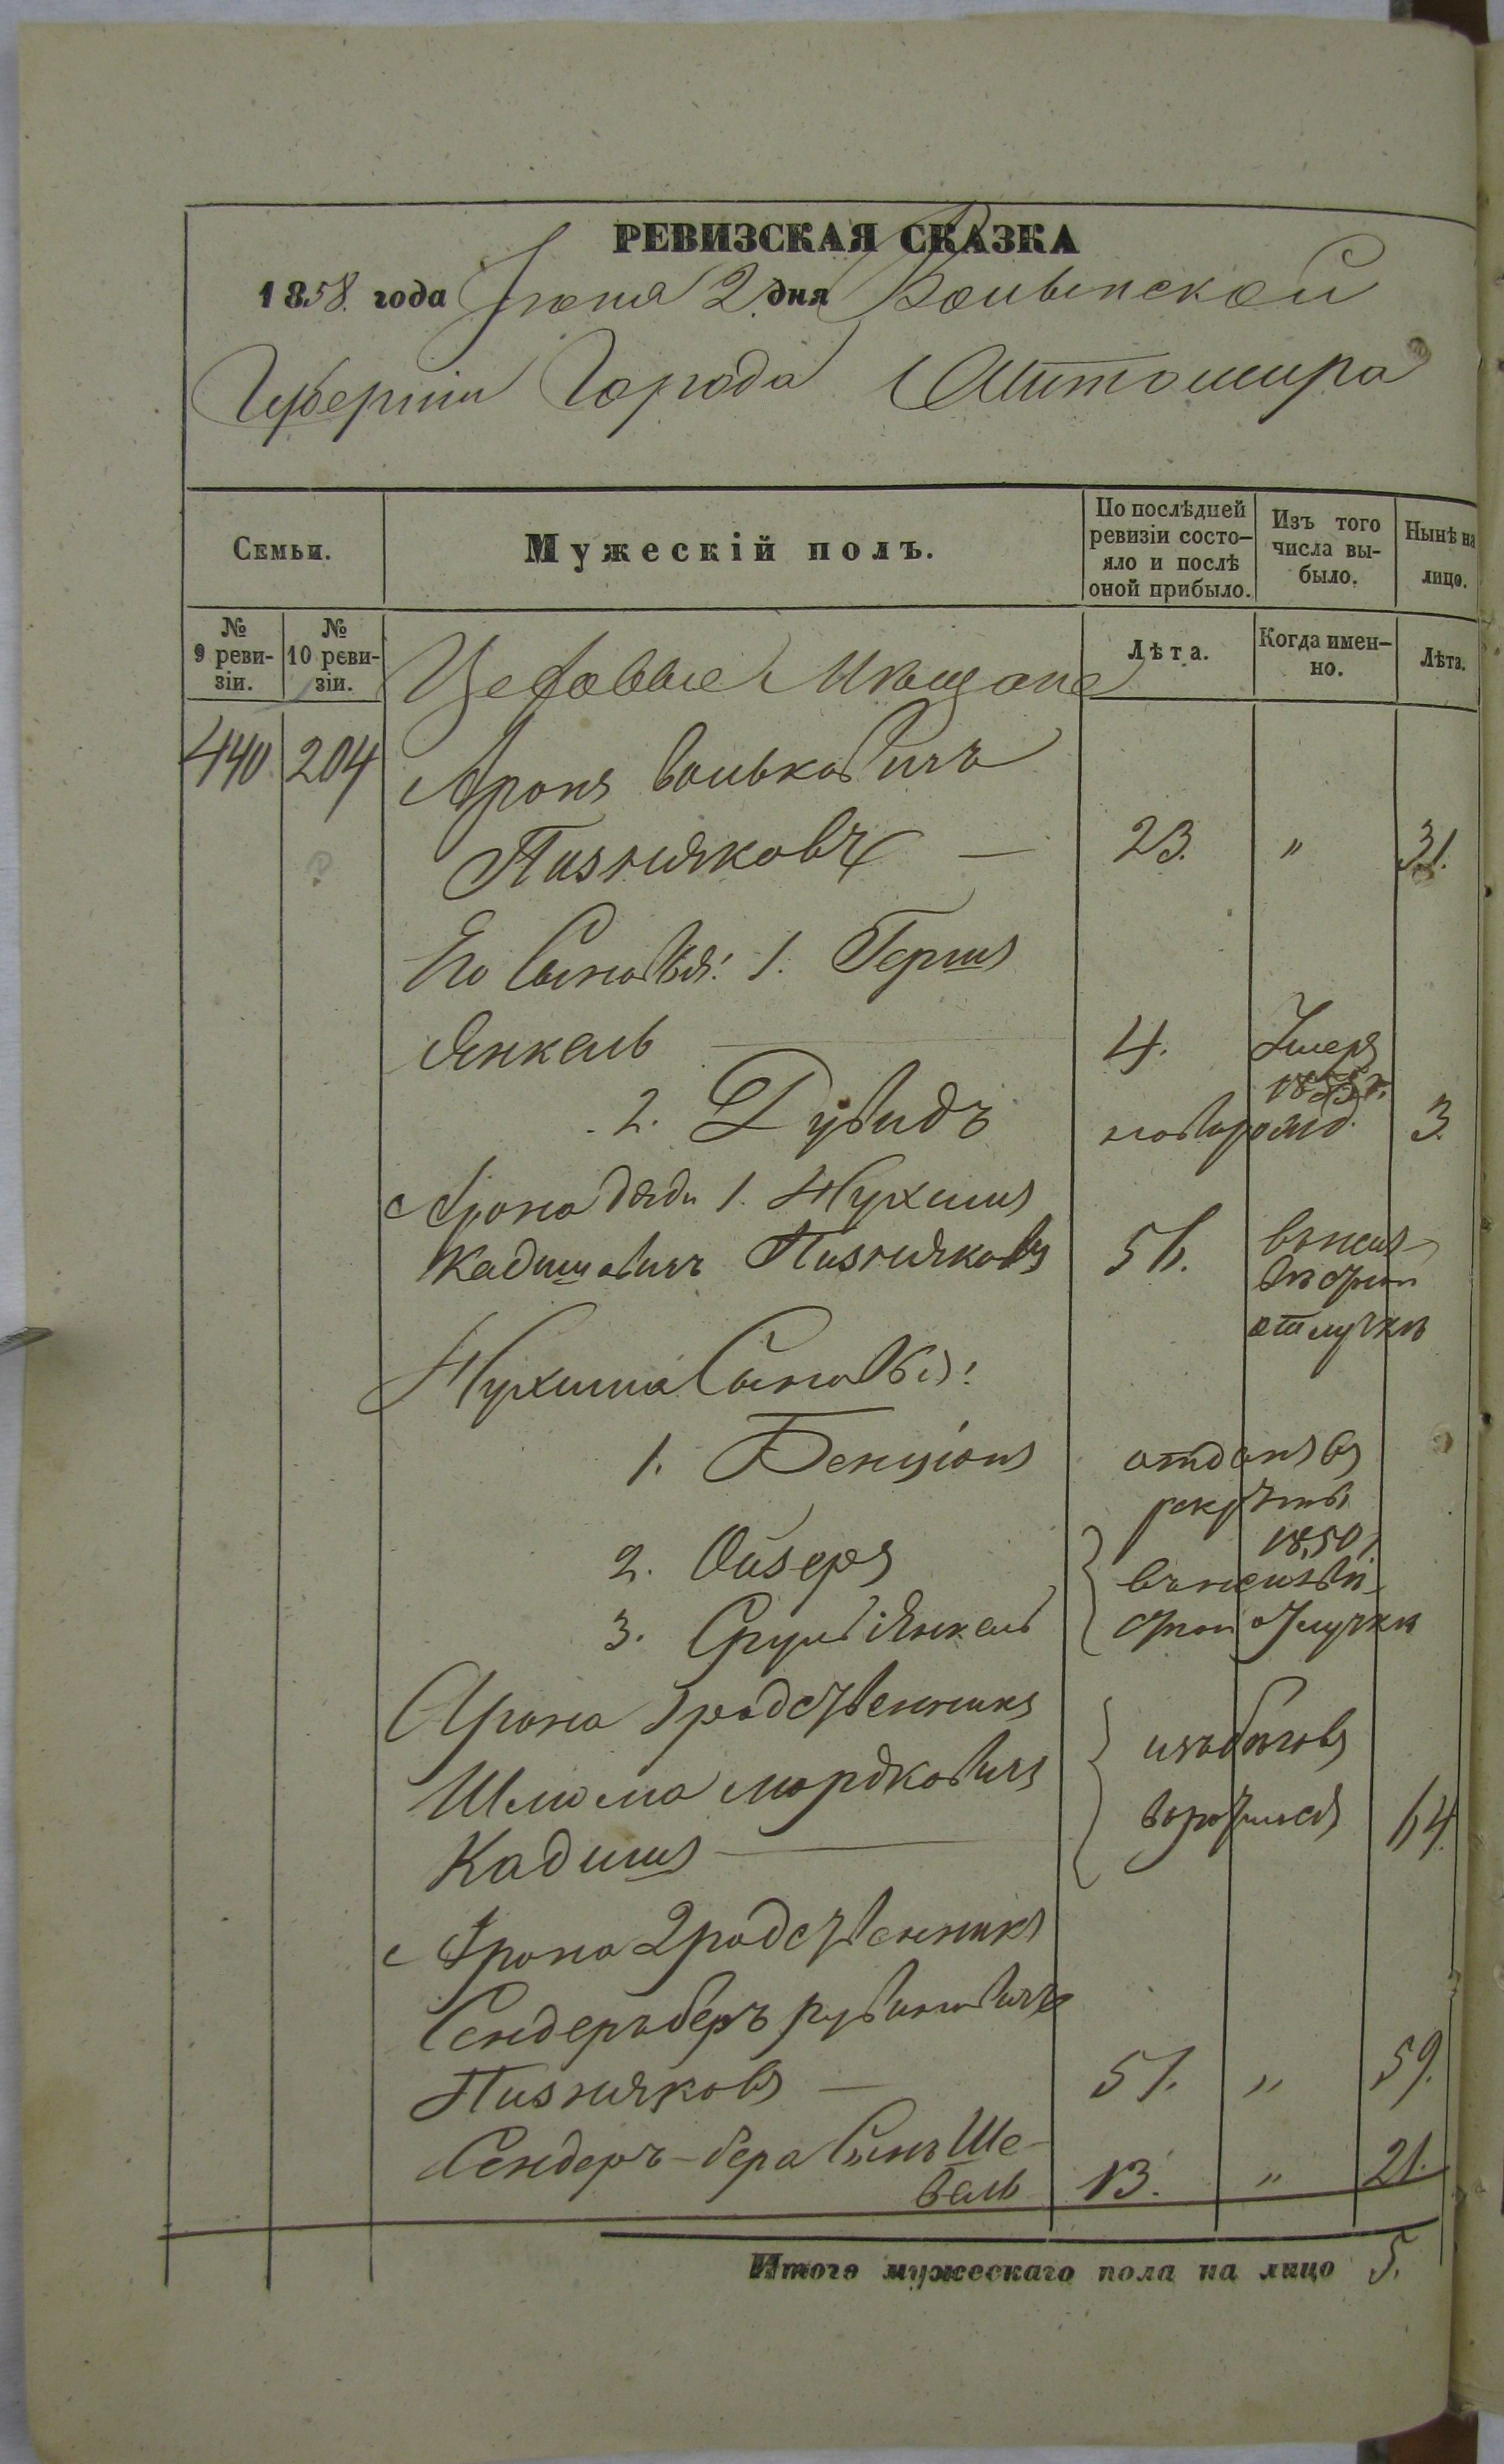 РЕВИЗСКАЯ СКАЗКА
1858. года Іюня 2 дня Волынской
Губерніи Города Житомира
Семьи.
Мужескій полъ.
По послѣдней ревизіи состо-
яло и послѣ
оной прибыло.
Изъ того
числа вы-
было.
Нынѣ на
лицо.
№
9 реви-
зіи.
№
10 реви-
зіи.
Лѣта.
Когда имен-
но.
Лѣта.
Цеховые Мѣщане
440. 204 Аронъ Вольковичъ
Пизняковъ — 23. " 31.
Его Сыновья: 1. Герш
Янкель 4. Умеръ
1855 г.
2. Дувидъ новорожд. 3.
Арона дядя 1. Нухимъ
Кадишовичъ Пизняковъ 56. въ неиз-
вѣстной
отлучкѣ
Нухима Сыновья:
1. Бенціонъ отданъ въ
рекруты
1850 г.
2. Ойзеръ въ неизвѣ-
3. Сруль Янкель стной отлучкѣ
Арона 1 родственникъ
Шлиома Мордковичъ изъ бѣговъ
Кадишъ воротился 64.
Арона 2 родственникъ
Сендеръ беръ Рувиновичъ
Пизняковъ — 51. " 59.
Сендеръ-бера Сынъ Ше-
вель 13. " 21.
Итого мужескаго пола на лицо 5.